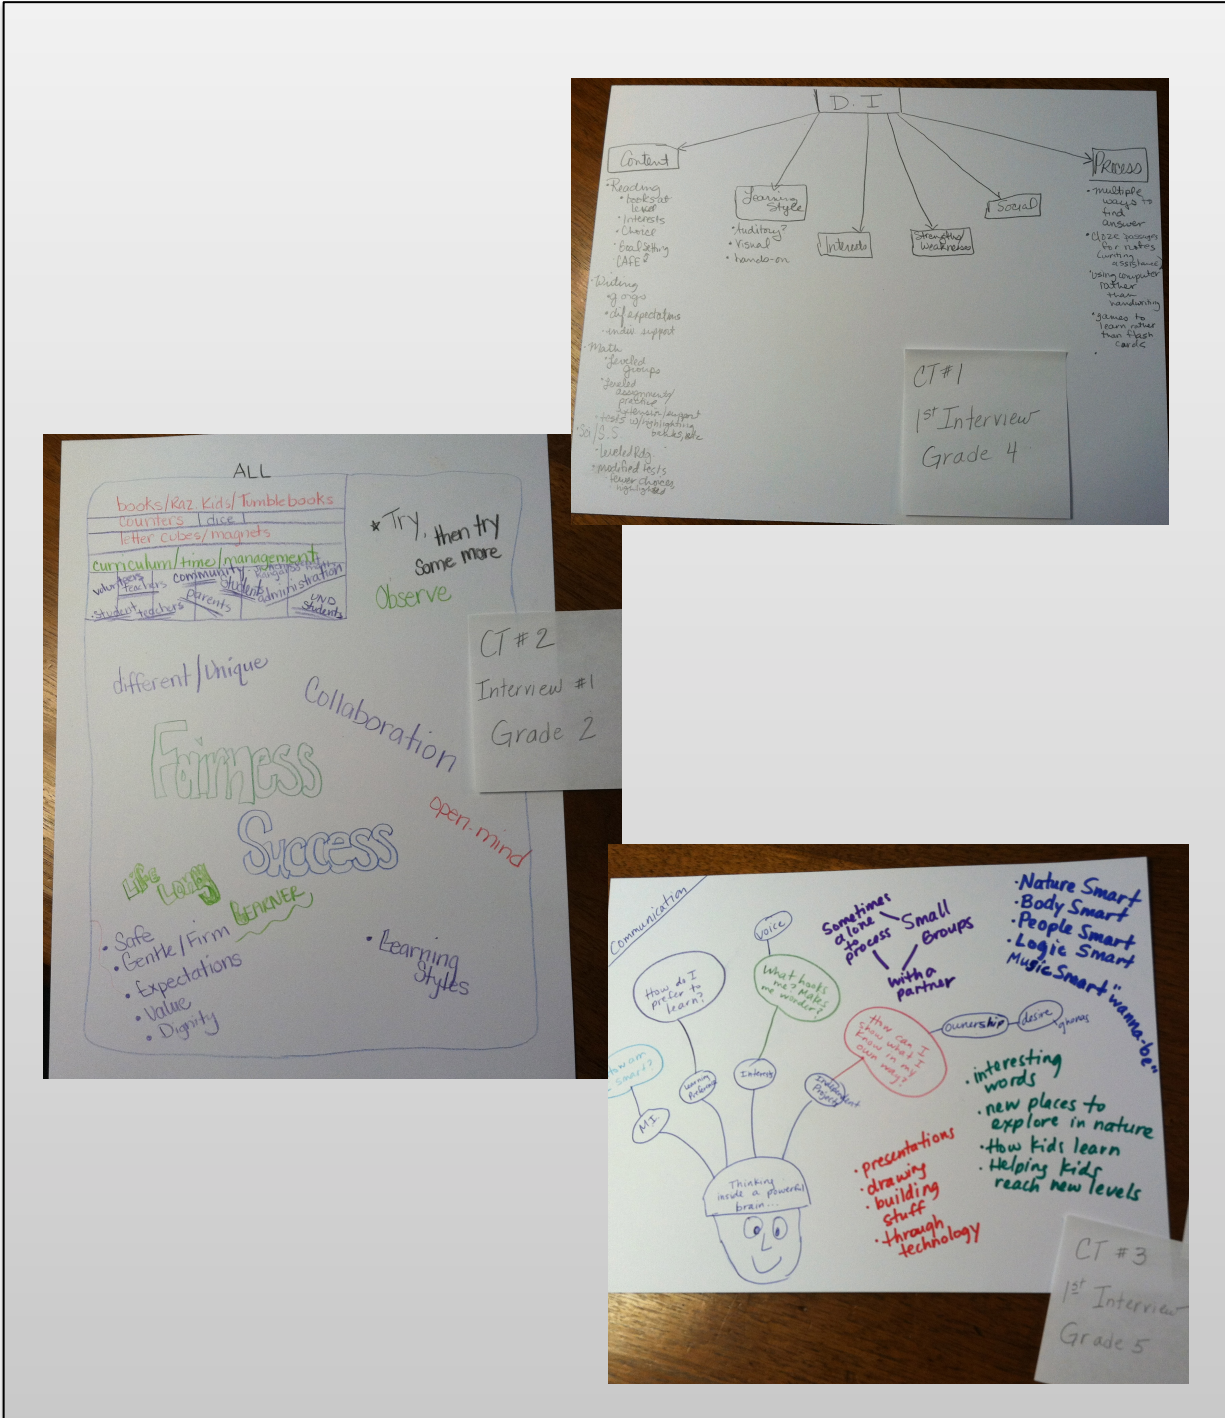 D. I
Content
• Reading
• books at
level
• Interests
• Choice
• Goal Setting
• CAFE
• Writing
• g. orgs
• dif expectations
• indiv. support
• Math
• Leveled
groups
• Leveled
assignments/
practice
extension/support
• tests w/highlighting
• Sci/S.S
• Leveled Rdg.
• modified tests
• fewer choices
highlighted
Learning
Style
• Auditory?
• Visual
• hands-on
Interests
Strengths/
Weaknesses
Social
Process
• multiple
ways to
find
answer
• Cloze passages
for notes
(writing
assistance)
• using computer
rather
than
handwriting
• games to
learn rather
than flash
cards
CT #1
1st Interview
Grade 4
ALL
books/Raz. Kids/Tumblebooks
counters | dice |
letter cubes/magnets
curriculum/time/management
volunteers
teachers
community
students
administration
• student teachers
parents
UND
Students
* Try, then try
some more
Observe
CT #2
Interview #1
Grade 2
different/Unique
Collaboration
Fairness
Success
open-mind
Life
Long
Learner
• Safe
• Gentle/Firm
• Expectations
• Value
• Dignity
• Learning
Styles
Communication
How do I
prefer to
learn?
voice
What hooks
me? Makes
me wonder?
Sometimes
alone
to
process
Small
Groups
with a
partner
• Nature Smart
• Body Smart
• People Smart
• Logic Smart
Music Smart "wanna-be"
How can I
show what I
know in my
own way?
ownership
desire
smart?
MI
Learning
Preference
Interests
Independent
Projects
Thinking
inside a powerful
brain...
• interesting
words
• new places to
explore in nature
• How kids learn
• Helping kids
reach new levels
• presentations
• drawing
• building
stuff
• through
technology
CT #3
1st Interview
Grade 5